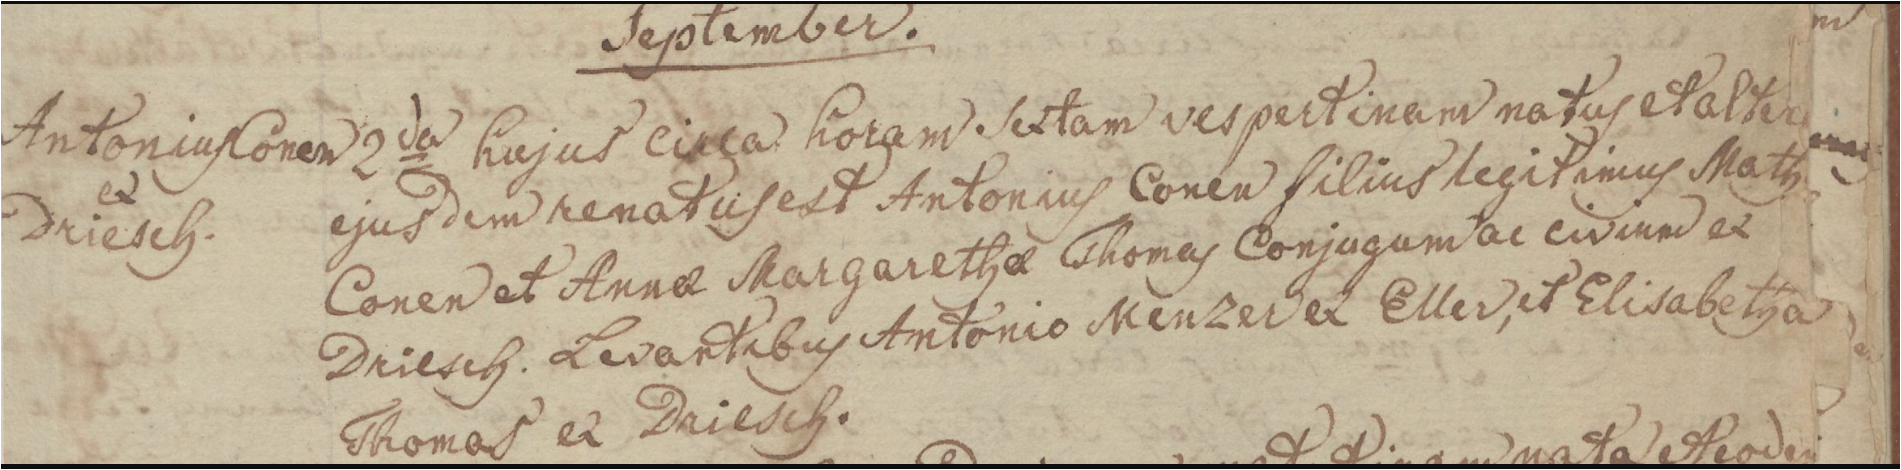 September.
Antonius Conen 2da hujus circa horam sextam vespertinam natus et alter
ex
Driesch.
ejusdem renatus est Antonius Conen filius legitimus Math
Conen et Annæ Margarethæ Thomas Conjugum ac civium ex
Driesch. Levantibus Antonio Menzer ex Eller, et Elisabetha
Thomas ex Driesch.
nata et eodem